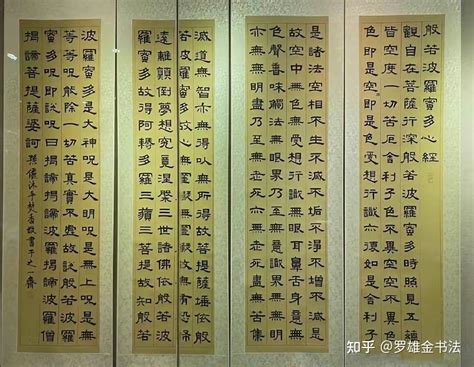 般若波羅蜜多心經
觀自在菩薩行深般若波羅蜜多時照見五蘊
皆空度一切苦厄舍利子色不異空空不異色
色即是空空即是色受想行識亦復如是舍利子
是諸法空相不生不滅不垢不淨不增不減是
故空中無色無受想行識無眼耳鼻舌身意無
色聲香味觸法無眼界乃至無意識界無無明
亦無無明盡乃至無老死亦無老死盡無苦集
滅道無智亦無得以無所得故菩提薩埵依般
若波羅蜜多故心無罣礙無罣礙故無有恐怖
遠離顛倒夢想究竟涅槃三世諸佛依般若波
羅蜜多故得阿耨多羅三藐三菩提故知般若
波羅蜜多是大神咒是大明咒是無上咒是無
等等咒能除一切苦真實不虛故說般若波羅
蜜多咒即說咒曰揭諦揭諦波羅揭諦波羅僧
揭諦菩提薩婆訶
知乎 @罗雄金书法